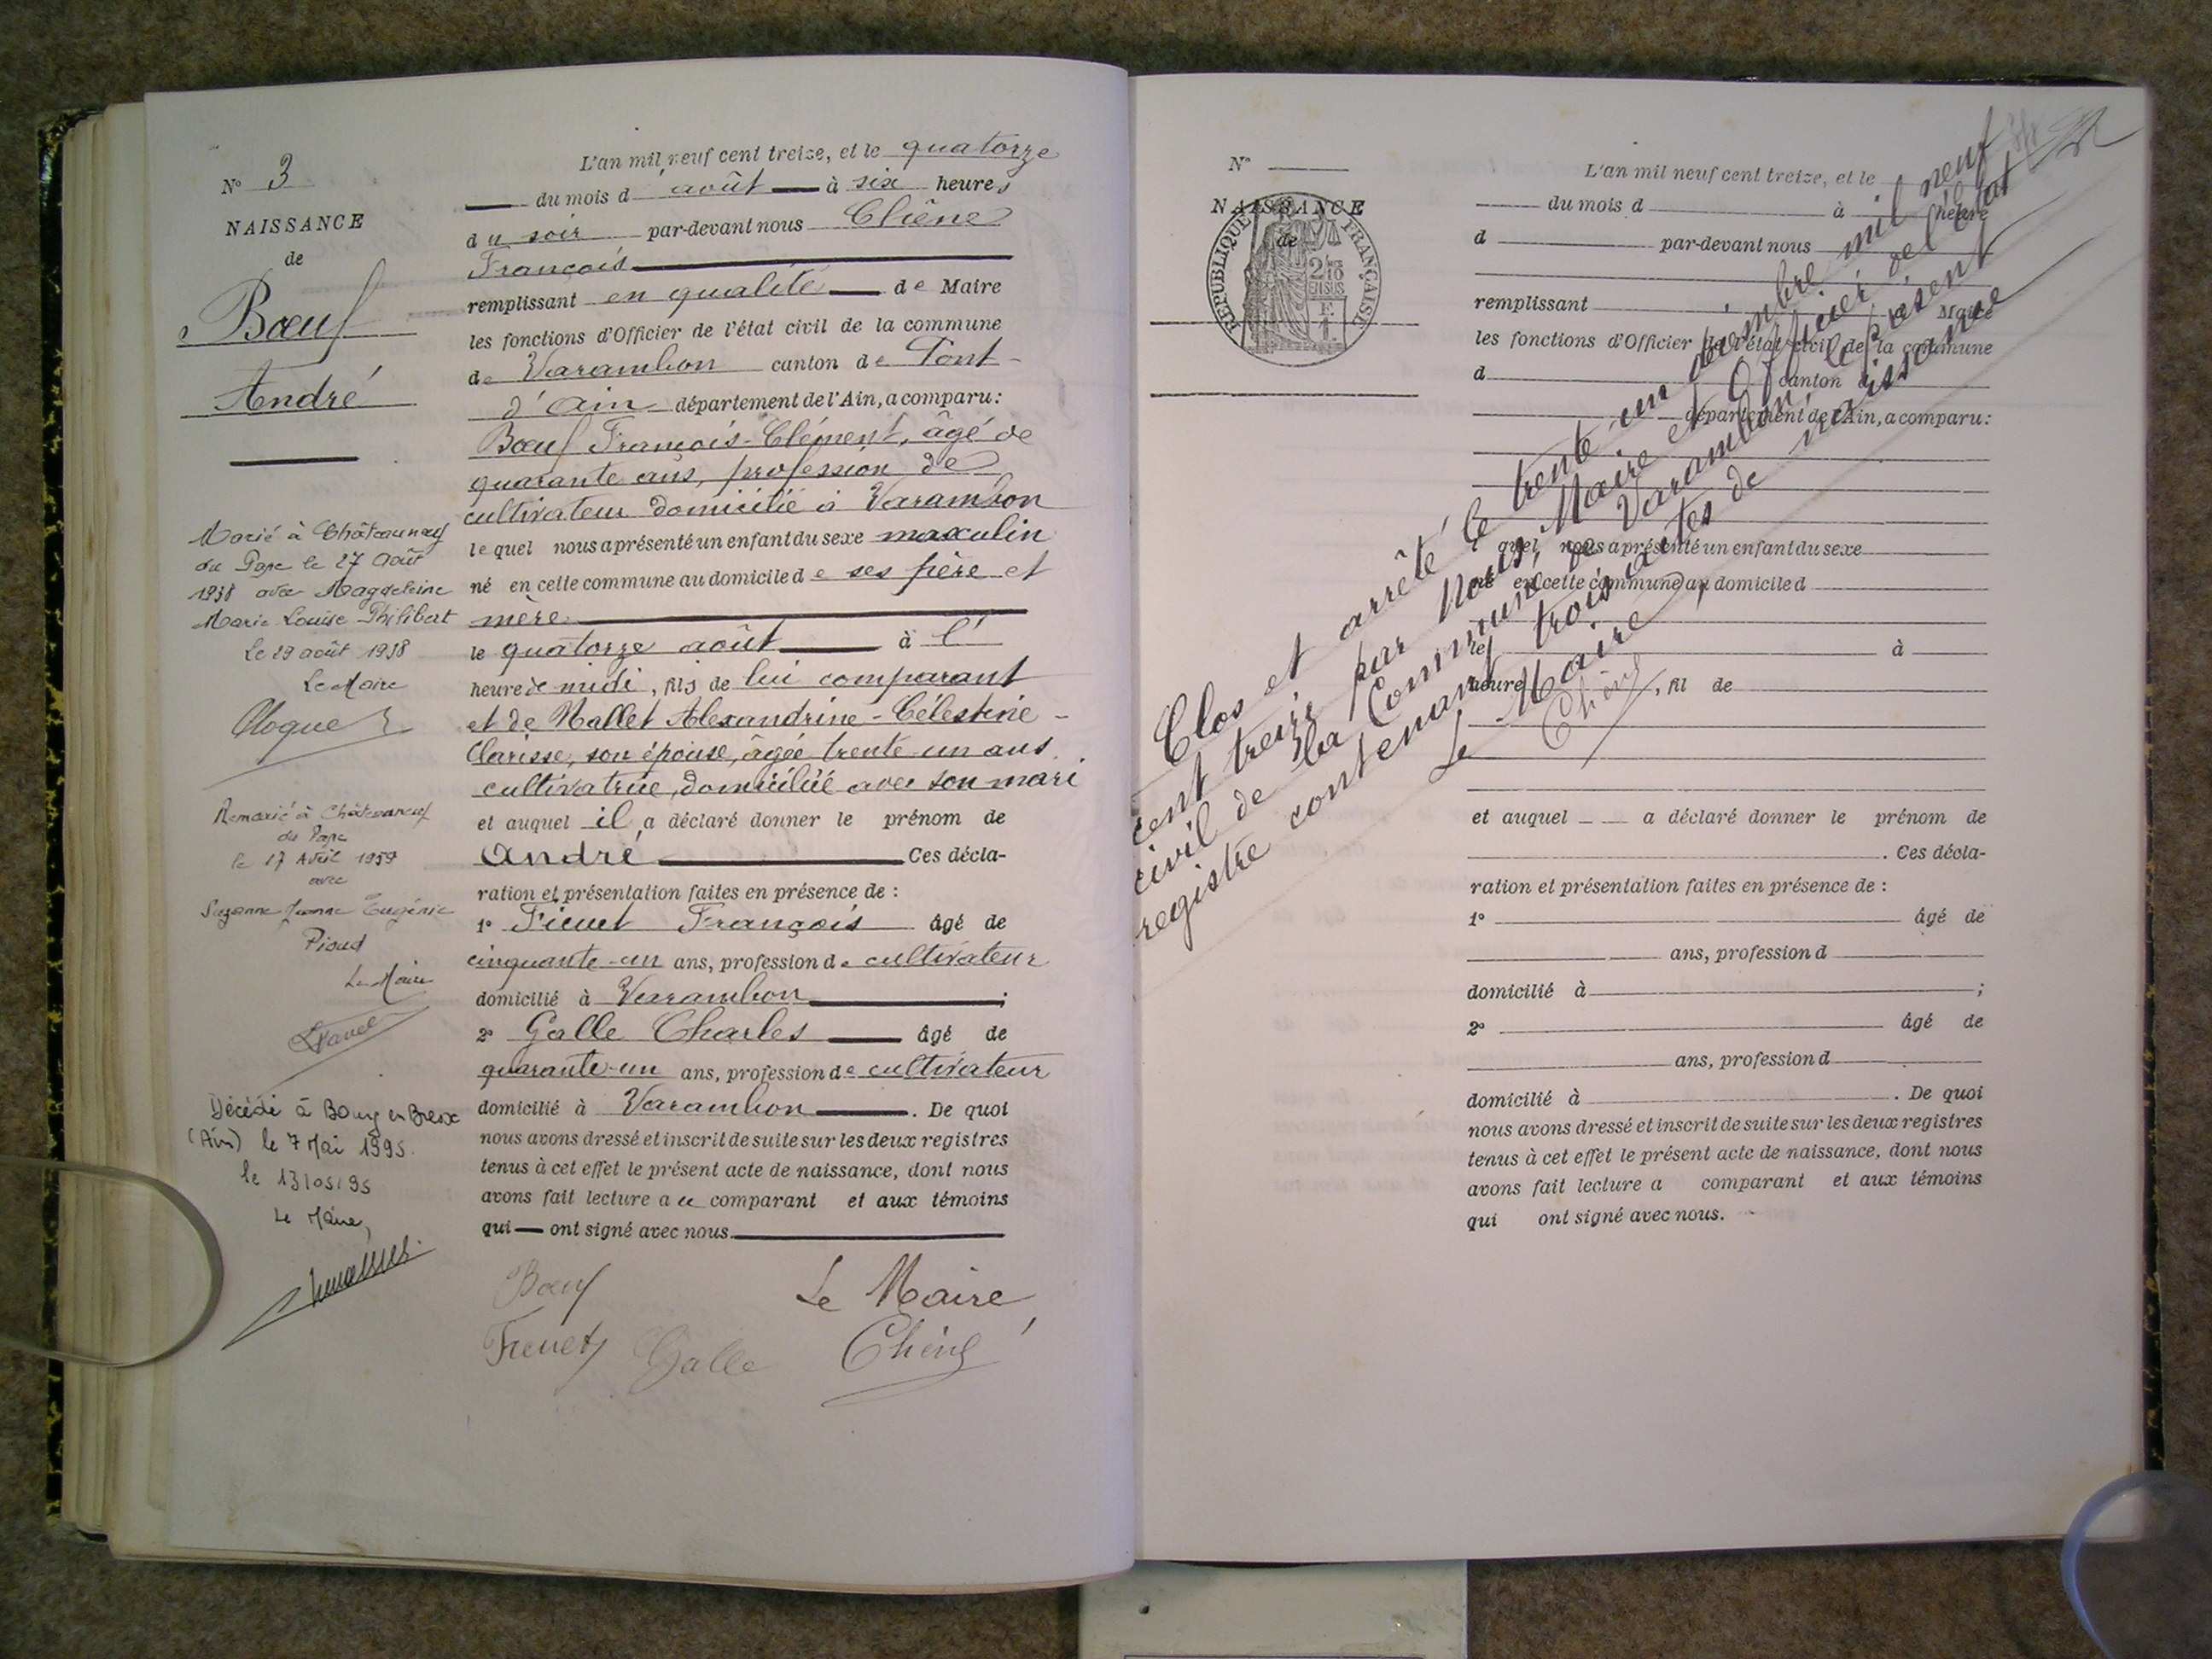 N° 3
NAISSANCE
de
Bœuf
André
Marié à Châteauneuf
du Pape le 27 Août
1938 avec Magdeleine
Marie Louise Philibert
Le 29 août 1938
Le Maire
Remarié à Châteauneuf
du Pape
le 17 Avril 1959
avec
Suzanne Jeanne Eugénie
Pioud
Le Maire
Décédé à Bourg en Bresse
(Ain) le 7 Mai 1995.
le 13/05/95
Le Maire,
L'an mil neuf cent treize, et le quatorze
du mois d'août à six heures
du soir par-devant nous Chêne
François
remplissant en qualité de Maire
les fonctions d'Officier de l'état civil de la commune
de Varambon canton de Pont-
d'Ain département de l'Ain, a comparu:
Bœuf François-Clément, âgé de
quarante ans, profession de
cultivateur domicilié à Varambon
lequel nous a présenté un enfant du sexe masculin
né en cette commune au domicile de ses père et
mère
le quatorze août à l'
heure de midi, fils de lui comparant
et de Mallet Alexandrine-Célestine-
Clarisse, son épouse, âgée trente-un ans
cultivatrice, domiciliée avec son mari
et auquel il a déclaré donner le prénom de
André Ces décla-
ration et présentation faites en présence de :
1° François âgé de
cinquante-un ans, profession de cultivateur
domicilié à Varambon ;
2° Galle Charles âgé de
quarante-un ans, profession de cultivateur
domicilié à Varambon . De quoi
nous avons dressé et inscrit de suite sur les deux registres
tenus à cet effet le présent acte de naissance, dont nous
avons fait lecture au comparant et aux témoins
qui ont signé avec nous.
Bœuf Le Maire,
Galle Chêne
N°
NAISSANCE
de
RÉPUBLIQUE FRANÇAISE
2/10
EN SUS
L'an mil neuf cent treize, et le
du mois d à heure
d par-devant nous
remplissant Maire
les fonctions d'Officier de l'état civil de la commune
d canton d
département de l'Ain, a comparu:
l quel nous a présenté un enfant du sexe
né en cette commune au domicile d
le à
heure , fil de
et auquel a déclaré donner le prénom de
. Ces décla-
ration et présentation faites en présence de :
1° âgé de
ans, profession d
domicilié à ;
2° âgé de
ans, profession d
domicilié à . De quoi
nous avons dressé et inscrit de suite sur les deux registres
tenus à cet effet le présent acte de naissance, dont nous
avons fait lecture a comparant et aux témoins
qui ont signé avec nous.
Clos et arrêté le trente un décembre mil neuf
cent treize par Nous, Maire et Officier de l'État
civil de la Commune de Varambon, le présent
registre contenant trois actes de naissance
Le Maire
Chêne